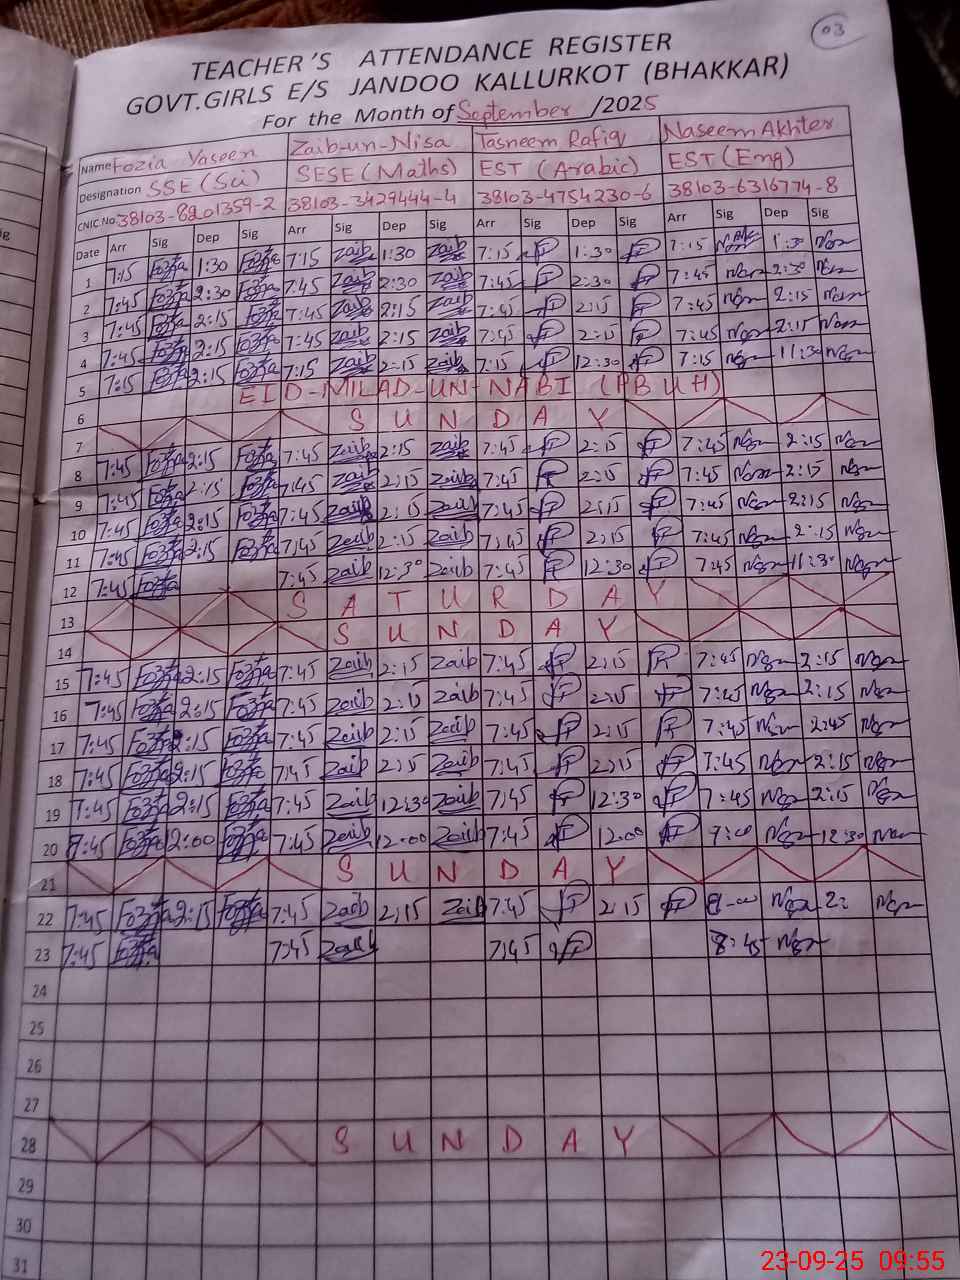 03
TEACHER'S ATTENDANCE REGISTER
GOVT.GIRLS E/S JANDOO KALLURKOT (BHAKKAR)
For the Month of September /2025
Name Fozia Yaseen Zaib-un-Nisa Tasneem Rafiq Naseem Akhter
Designation SSE (Sci) SESE (Maths) EST (Arabic) EST (Eng)
CNIC No. 38103-8201359-2 38103-3429444-4 38103-4754230-6 38103-6316774-8
Date Arr Sig Dep Sig Arr Sig Dep Sig Arr Sig Dep Sig Arr Sig Dep Sig
1 7:15 Fozia 1:30 Fozia 7:15 Zaib 1:30 Zaib 7:15 1:30 7:15 1:30
2 7:45 Fozia 2:30 Fozia 7:45 Zaib 2:30 Zaib 7:45 2:30 7:45 2:30
3 7:45 Fozia 2:15 Fozia 7:45 Zaib 2:15 Zaib 7:45 2:15 7:45 2:15
4 7:45 Fozia 2:15 Fozia 7:45 Zaib 2:15 Zaib 7:45 2:15 7:45 2:15
5 7:15 Fozia 2:15 Fozia 7:15 Zaib 2:15 Zaib 7:15 12:30 7:15 11:30
6 EID-MILAD-UN-NABI (PBUH)
7 SUNDAY
8 7:45 Fozia 2:15 Fozia 7:45 Zaib 2:15 Zaib 7:45 2:15 7:45 2:15
9 7:45 Fozia 2:15 Fozia 7:45 Zaib 2:15 Zaib 7:45 2:15 7:45 2:15
10 7:45 Fozia 2:15 Fozia 7:45 Zaib 2:15 Zaib 7:45 2:15 7:45 2:15
11 7:45 Fozia 2:15 Fozia 7:45 Zaib 2:15 Zaib 7:45 2:15 7:45 2:15
12 7:45 Fozia 7:45 Zaib 12:30 Zaib 7:45 12:30 7:45 11:30
13 SATURDAY
14 SUNDAY
15 7:45 Fozia 2:15 Fozia 7:45 Zaib 2:15 Zaib 7:45 2:15 7:45 2:15
16 7:45 Fozia 2:15 Fozia 7:45 Zaib 2:15 Zaib 7:45 2:15 7:45 2:15
17 7:45 Fozia 2:15 Fozia 7:45 Zaib 2:15 Zaib 7:45 2:15 7:45 2:45
18 7:45 Fozia 2:15 Fozia 7:45 Zaib 2:15 Zaib 7:45 2:15 7:45 2:15
19 7:45 Fozia 2:15 Fozia 7:45 Zaib 12:30 Zaib 7:45 12:30 7:45 2:15
20 7:45 Fozia 2:00 Fozia 7:45 Zaib 12:00 Zaib 7:45 12:00 12:30
21 SUNDAY
22 7:45 Fozia 2:15 Fozia 7:45 Zaib 2:15 Zaib 7:45 2:15 8-00 2:
23 7:45 Fozia 7:45 Zaib 7:45 8:45
24
25
26
27
28 SUNDAY
29
30
31
23-09-25 09:55